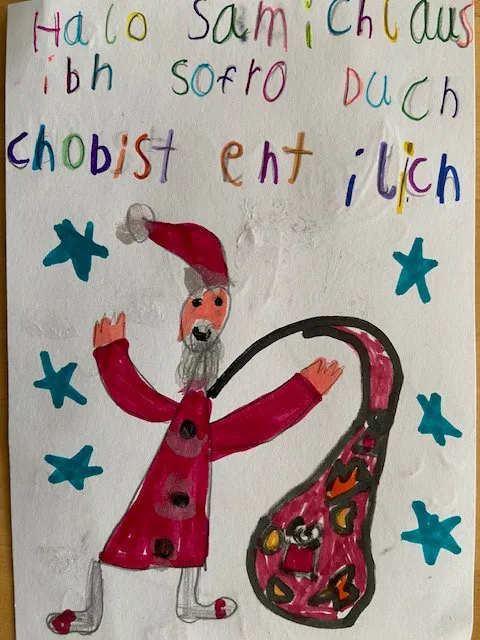 Halo Samichlaus
ibh sofro Duch
chobist eht ilich